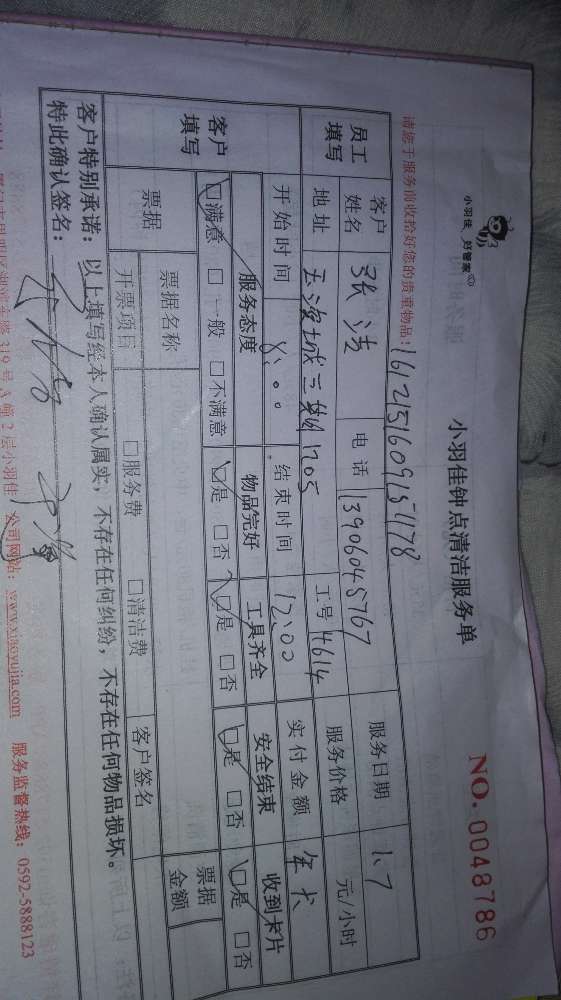 小羽佳 好管家
小羽佳钟点清洁服务单
NO. 0048786
请您于服务前收拾好您的贵重物品!
1612151609151178
员工填写
客户姓名 张 洁 电话 13906045767 服务日期 1.7
地址 三期1705 工号 4614 服务价格 元/小时
开始时间 8:00 结束时间 12:00 实付金额 年卡
客户填写
服务态度 物品完好 工具齐全 安全结束 收到卡片
☑满意 □一般 □不满意 ☑是 □否 ☑是 □否 ☑是 □否 ☑是 □否
票据 票据名称 票据金额
开票项目 □服务费 □清洁费 客户签名
客户特别承诺:以上填写经本人确认属实,不存在任何纠纷,不存在任何物品损坏。
特此确认签名:
319号A幢2层小羽佳 公司网站:www.xiaoyujia.com 服务监督热线:0592-5888123